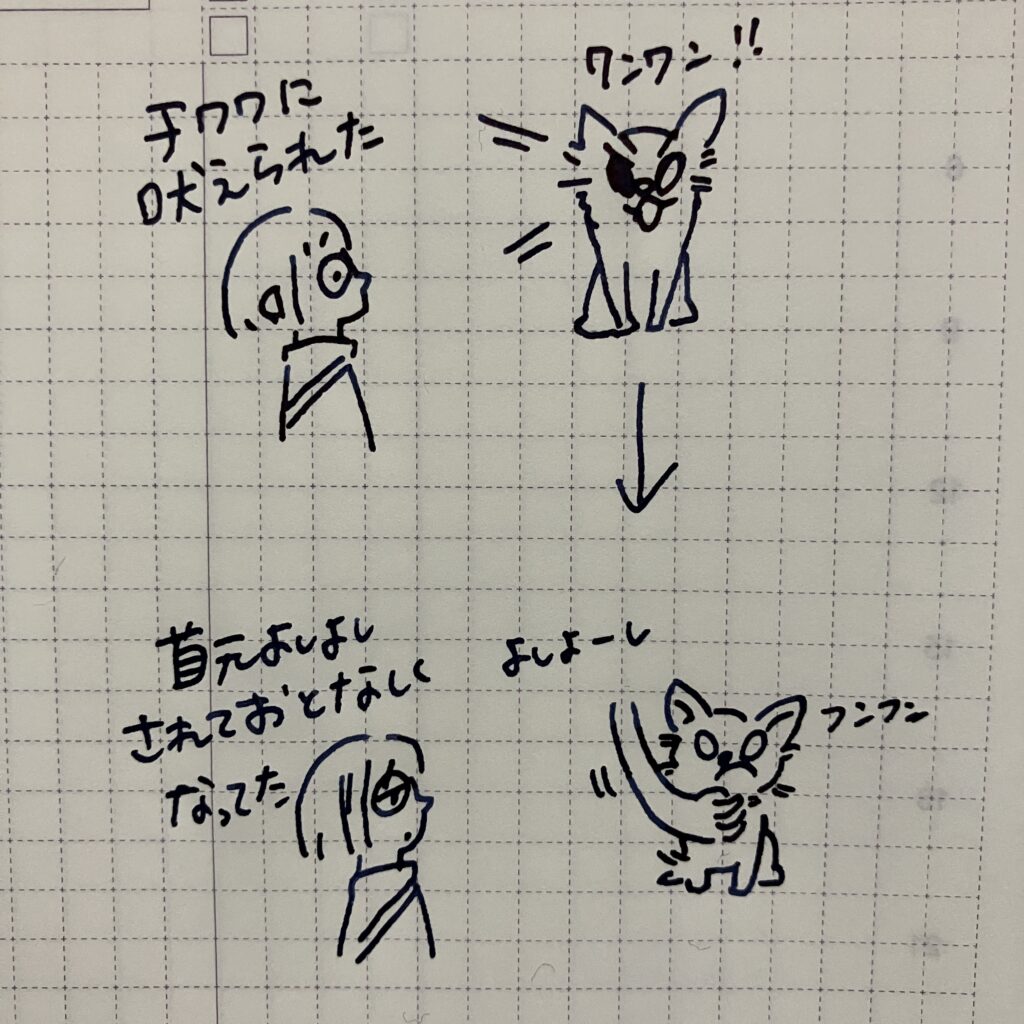 チワワに
吠えられた
ワンワン!!
首元よしよし
されておとなしく
なってた
よしよーし
フンフン